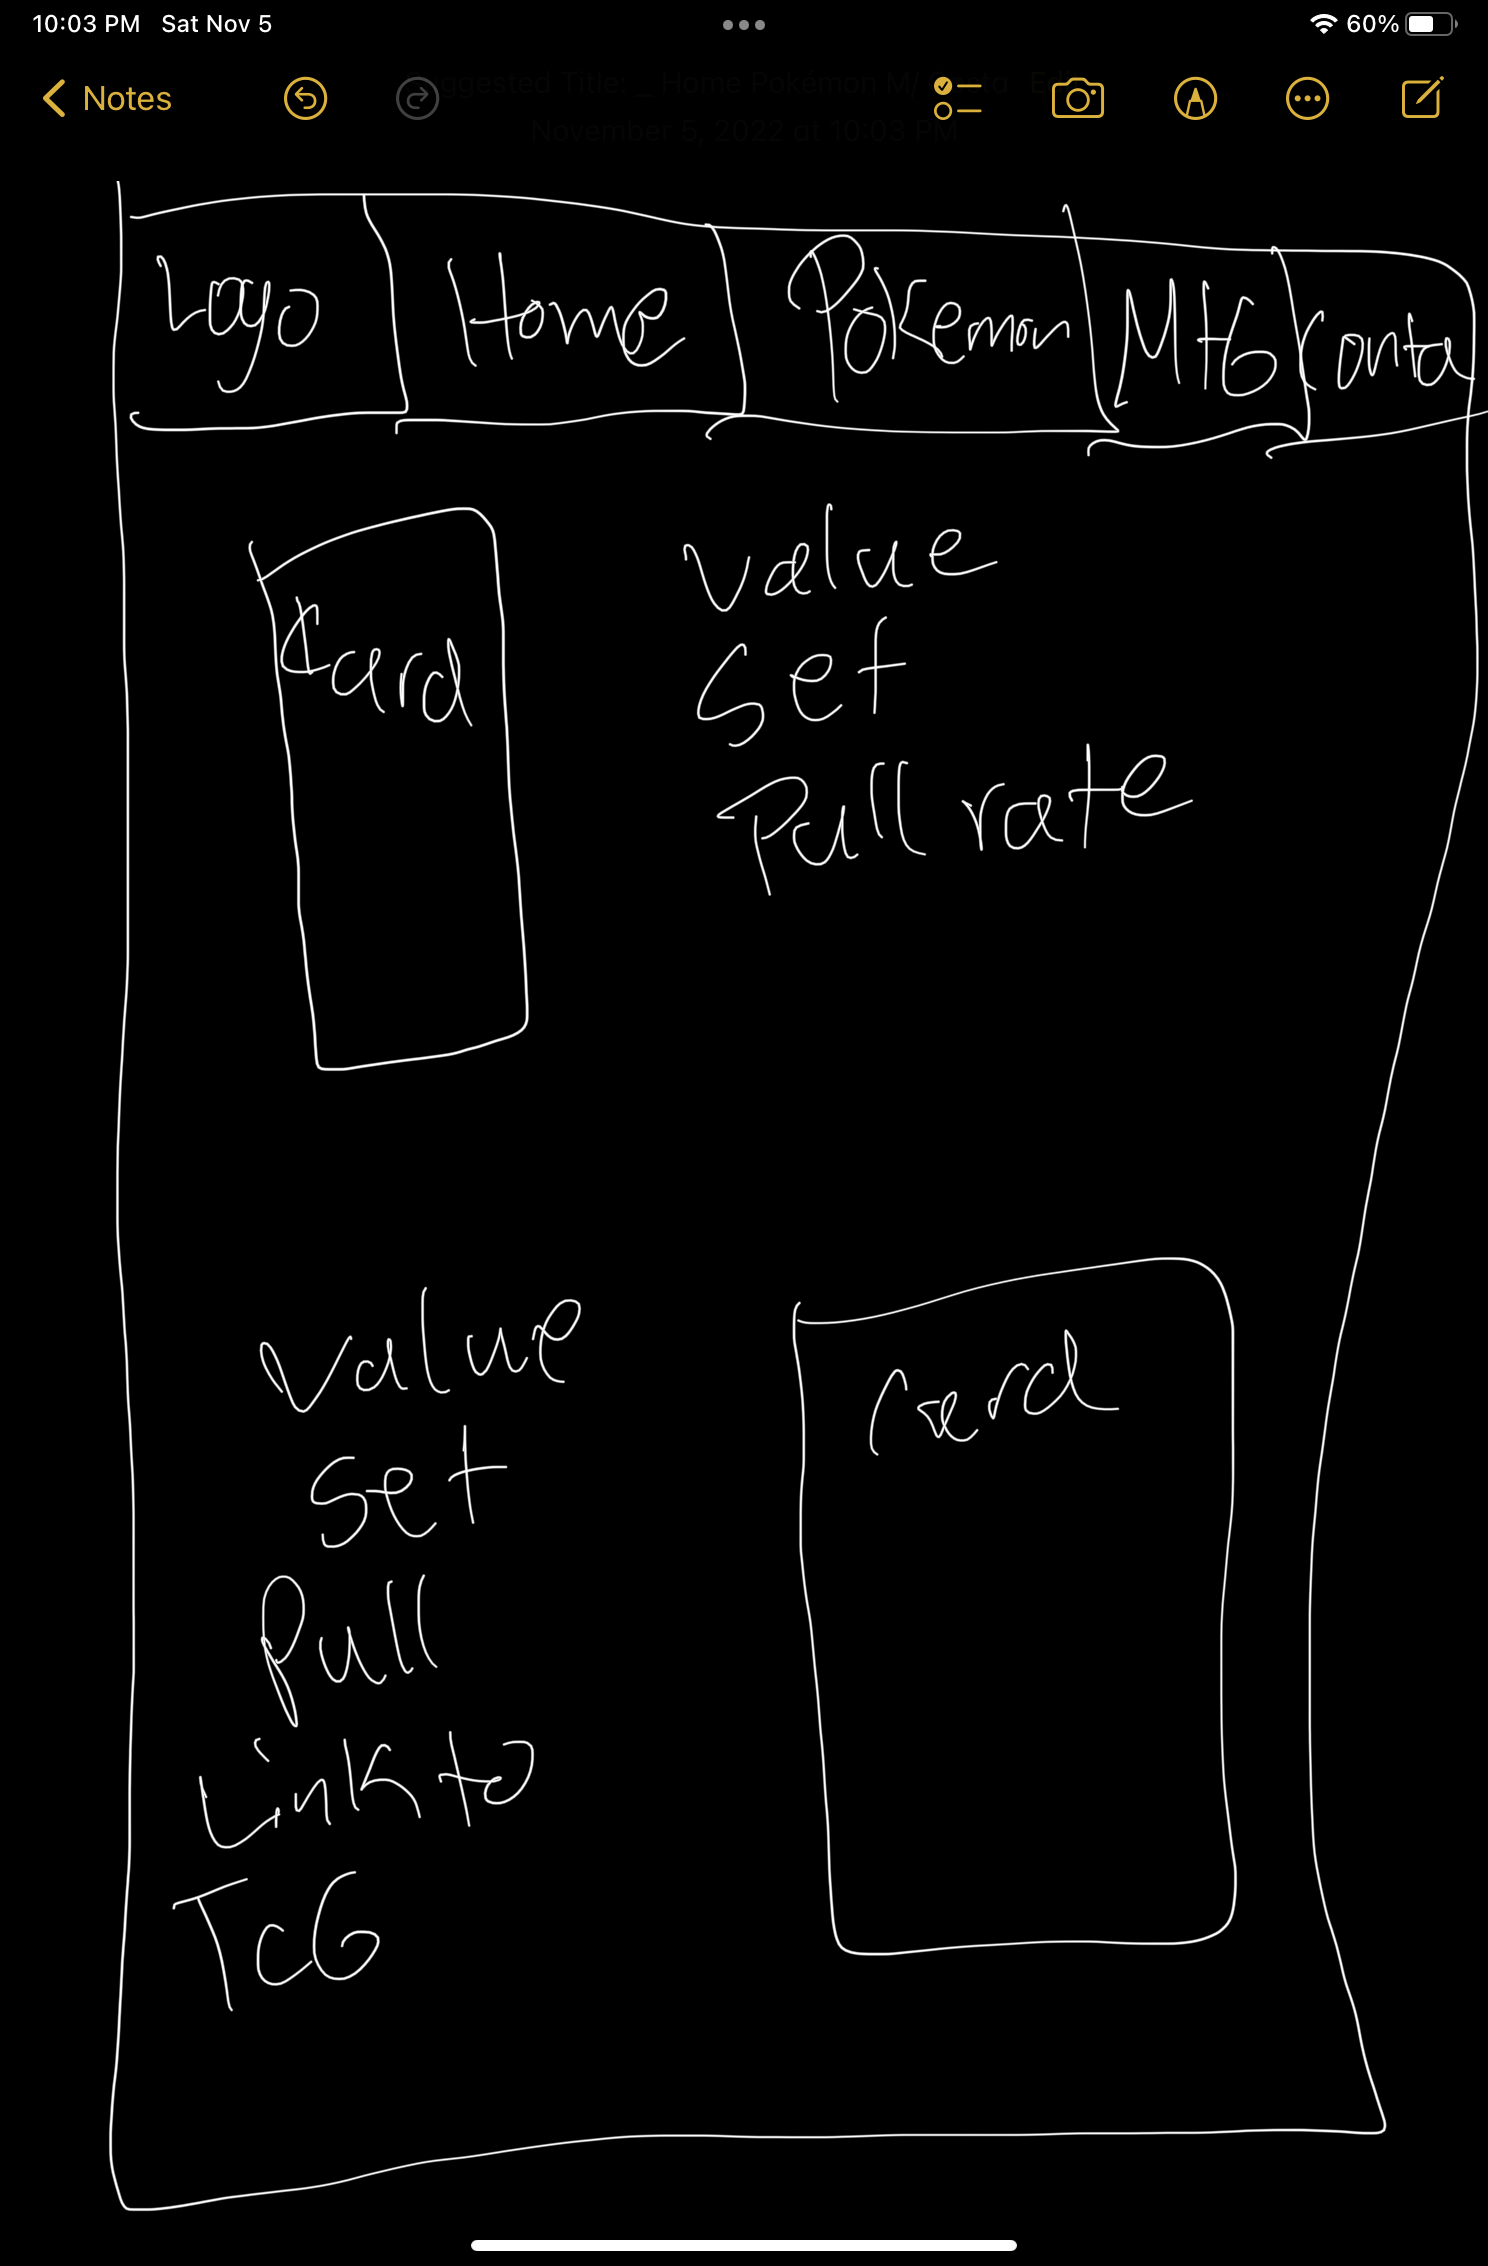 10:03 PM Sat Nov 5
60%
Notes
Suggested Title: _ Home Pokémon M/ Conta Edit
November 5, 2022 at 10:03 PM
Logo Home Pokemon MtG Conta
Card
Value
Set
Pull rate
Value
Set
Pull
Link to
TCG
Card